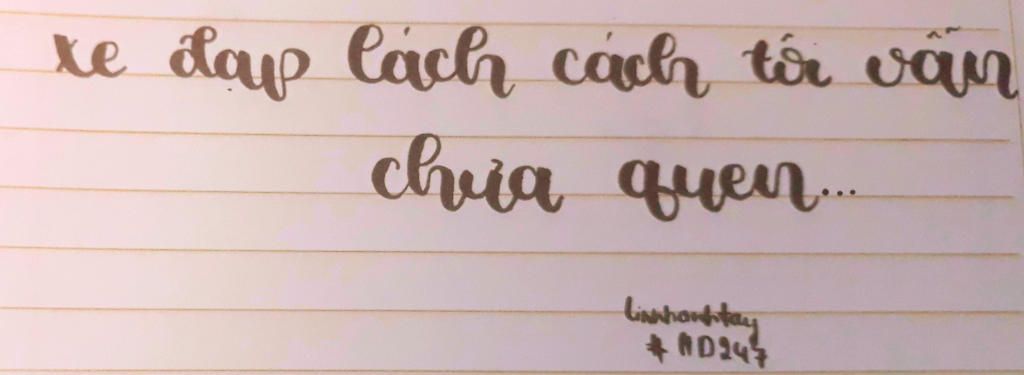 xe đạp lách cách tôi vẫn
chưa quen...
linhhanhtay
# AD247